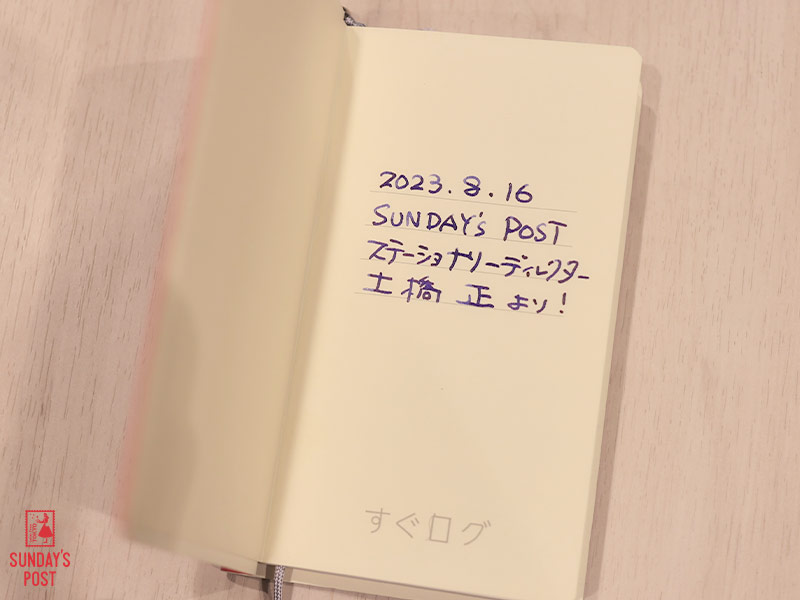 2023.8.16
SUNDAY's POST
ステーショナリーディレクター
土橋 正 より!
すぐログ
SUNDAY'S
POST